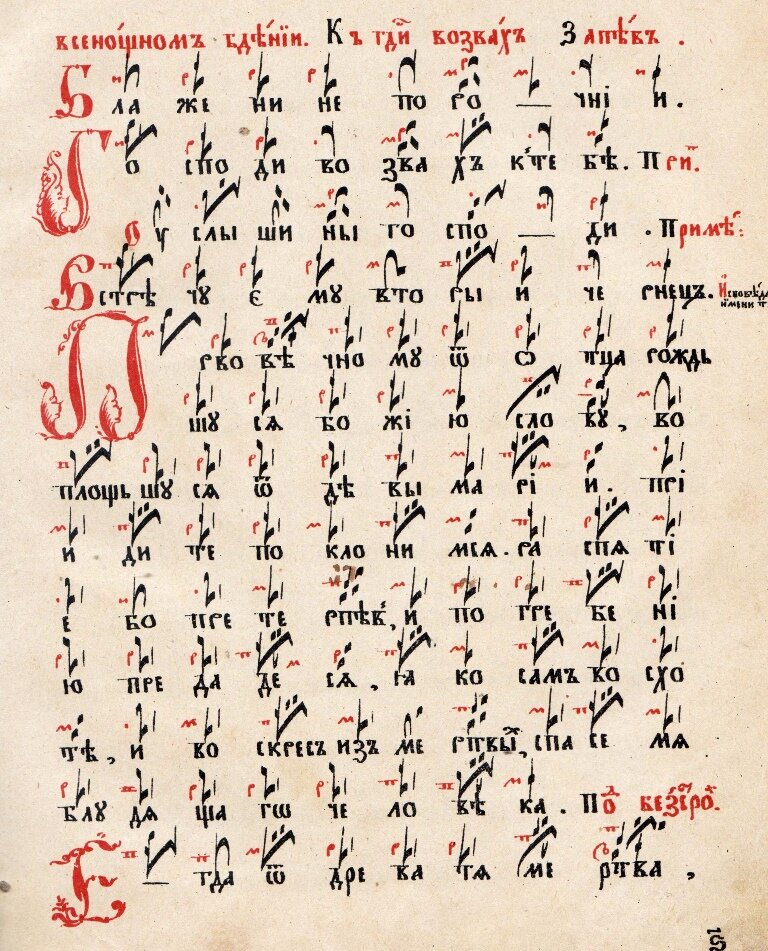 всенощномъ бдѣ́нїи. К ъ гд҇и возвахъ Запѣвъ .
Бла же ни не по ро — чні и .
Го спо ди во зва хъ к̾ те бѣ . При҇
Оу слы ши ны го спо — ди . Примѣ:
Встрѣ чу є му вто ры и че рнецъ.
Прво вѣ чно му ѿ ѡ тца рождь
шу ся бо жію сло ву, во
площь шу ся ѿ дѣ вы ма рі и . прі
и ди те по кло ни мся . ра спя ті
е бо пре те рпѣв, и по гре бе ні
ю пре да де ся , ꙗ ко самъ во схо
тѣ, и во скресъ изъ ме ртвы̆, спа се мя
блу дя ща гѡ че ло вѣ ка .
Е — гда ѿ дре ва тя ме ртва ,